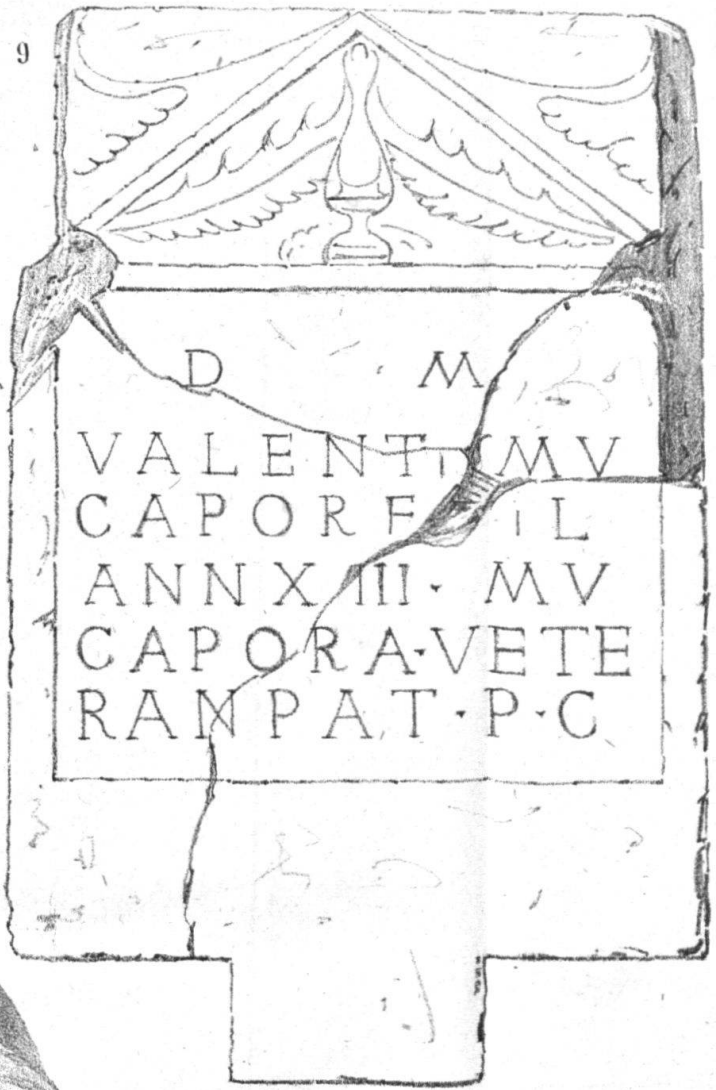 9
D M
VALENTI MV
CAPORE IL
ANNXIII · MV
CAPORA·VETE
RANPAT·P·C